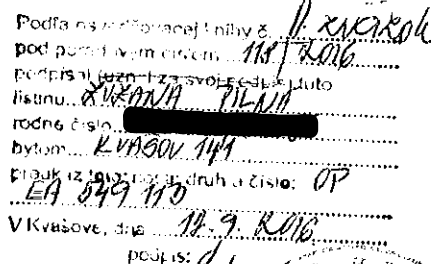 Podľa osvedčovacej knihy č. II. zväzok
pod poradovým číslom 118/2016
podpísal (uznal za svoj) túto
listinu ZUZANA PILNÁ
rodné číslo
bytom KVAŠOV 141
preukaz totožnosti: druh a číslo: OP
EA 549 113
V Kvašove, dňa 12.9.2016
podpis: